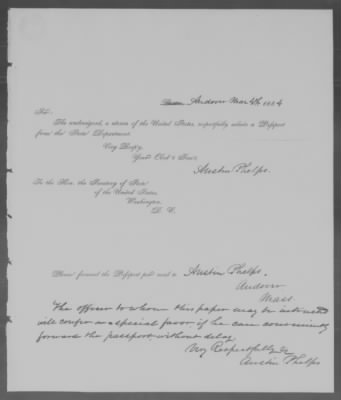 Andover Mar 4th, 1884
Sir:
The undersigned, a citizen of the United States, respectfully solicits a Passport
from the State Department.
Very Resp'y,
Your Obt Serv't
Austin Phelps.
To the Hon. the Secretary of State
of the United States,
Washington
D. C.
Please forward the Passport
Austin Phelps.
Andover
Mass.
The officer to whom this paper may be intrusted
will confer a special favor, if he can conveniently
forward the passport without delay
Very Respectfully
Austin Phelps